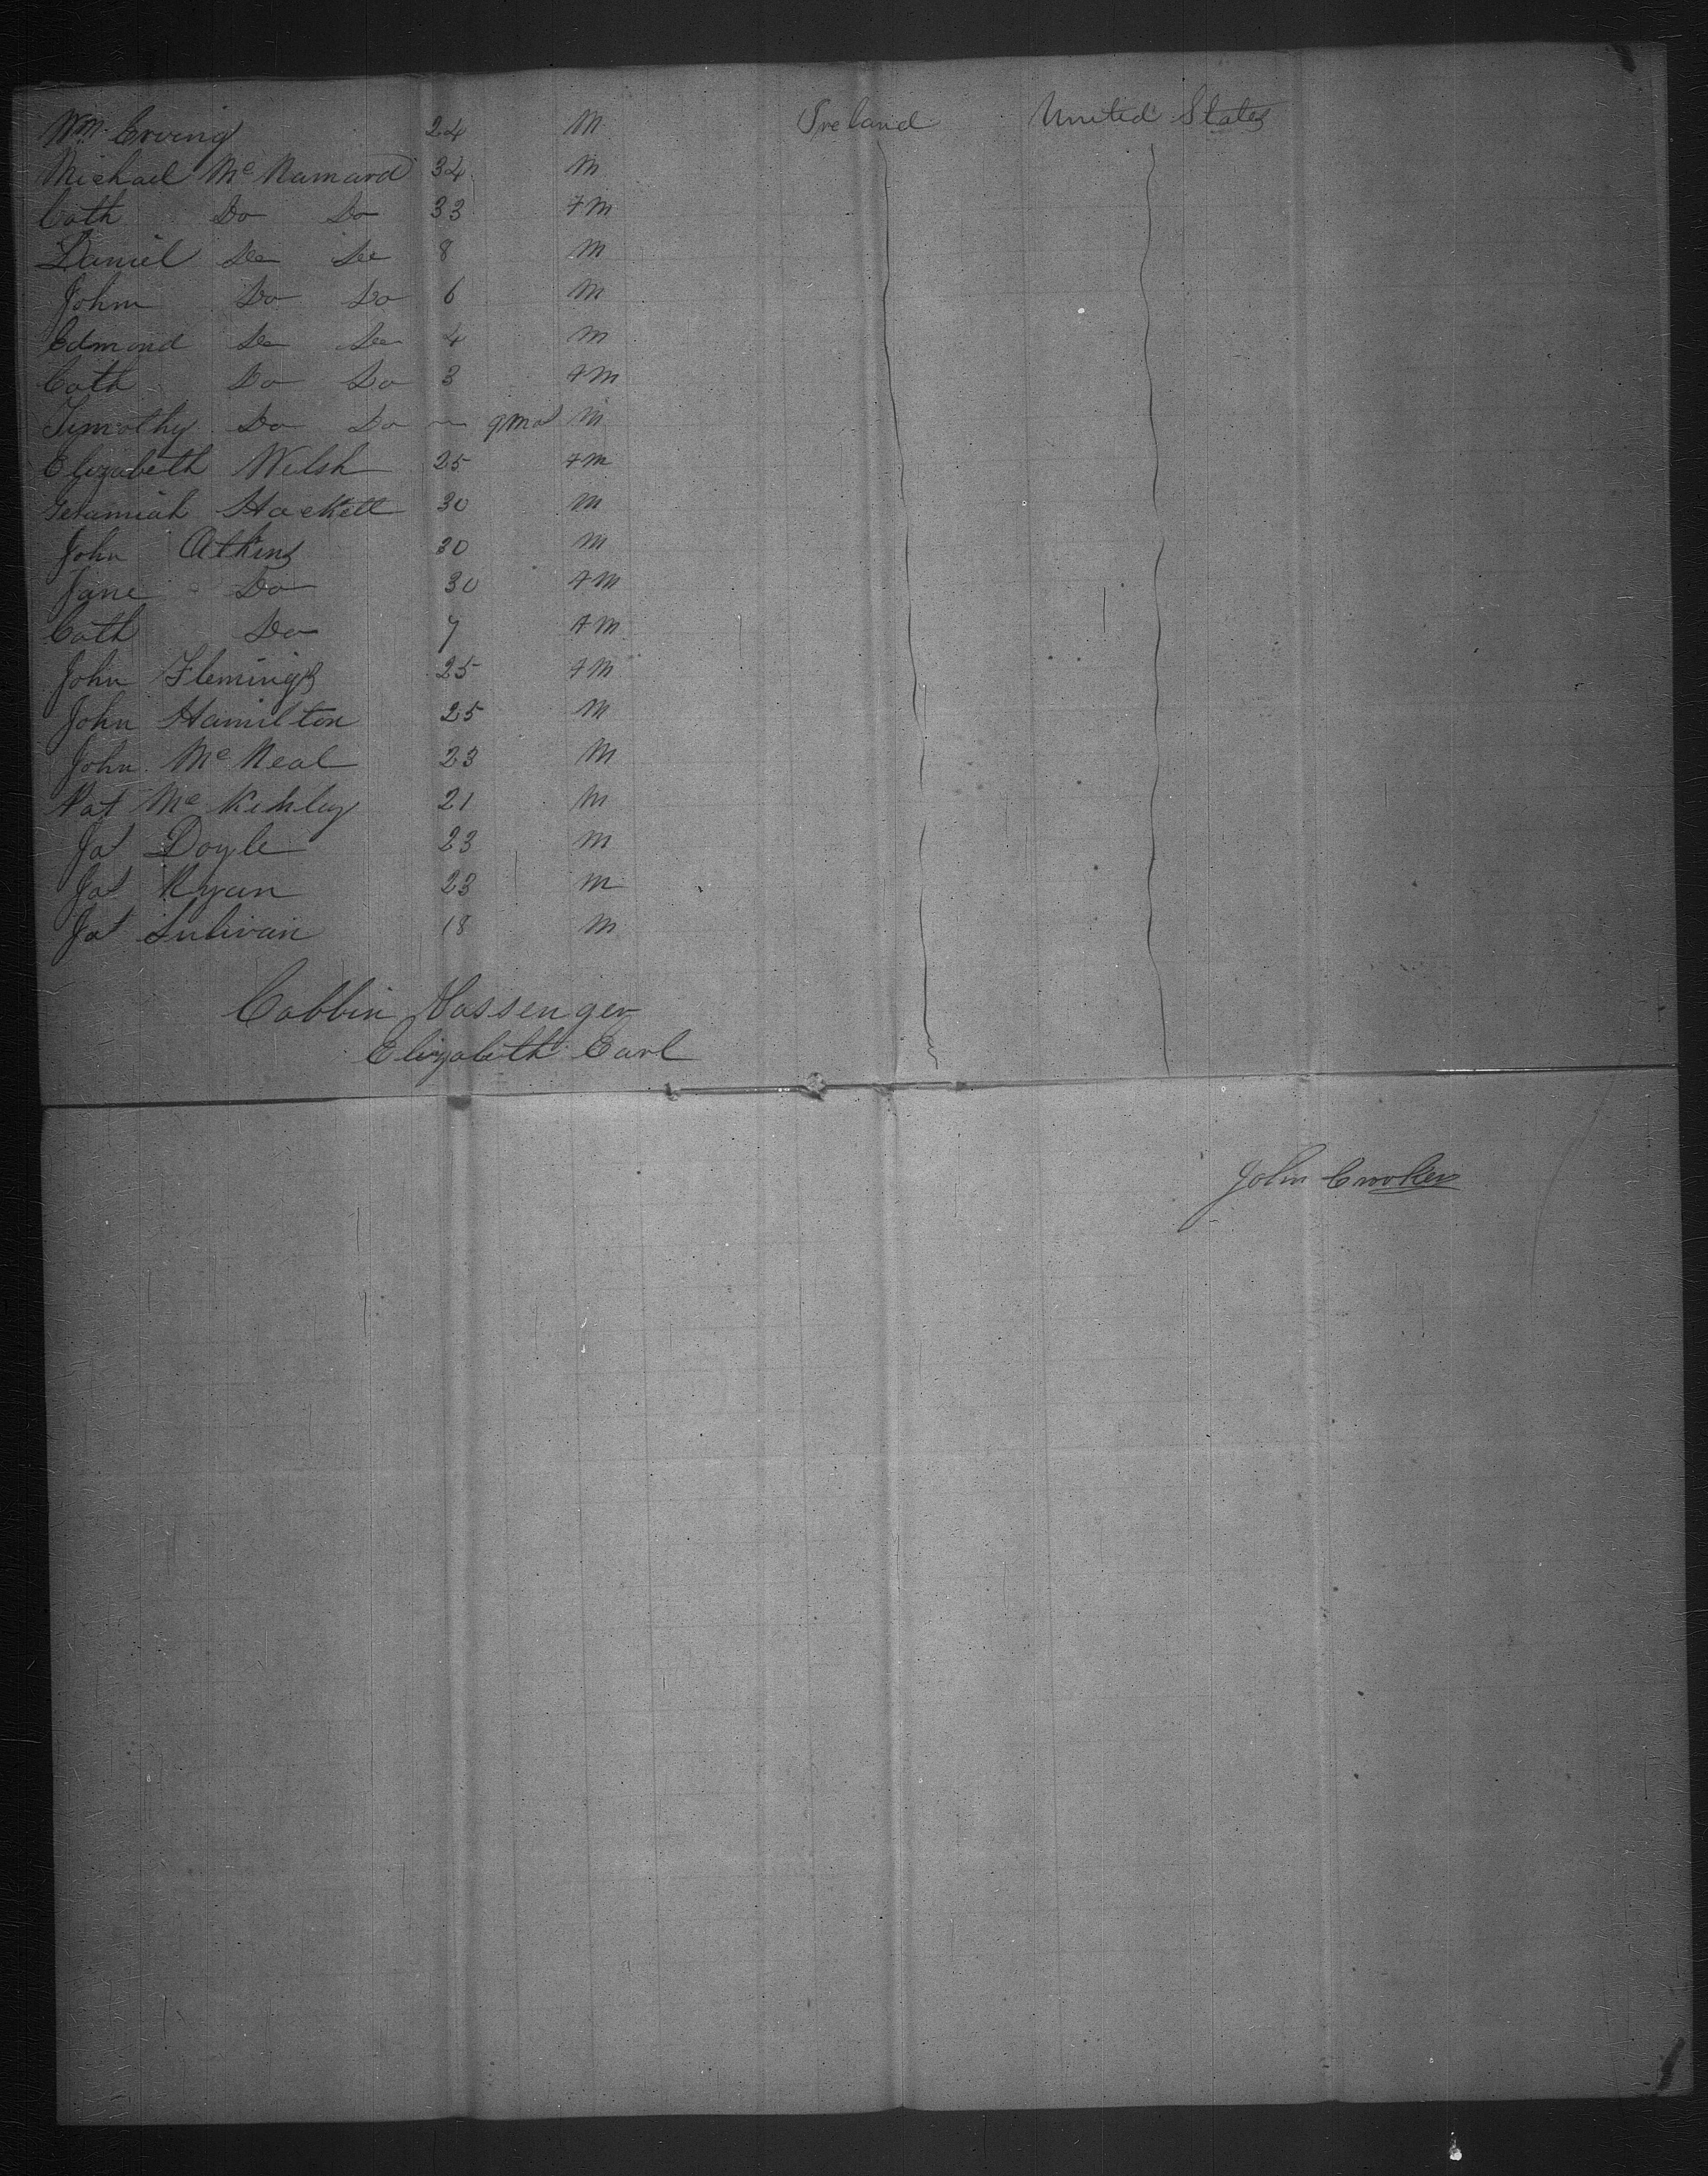 Wm. Erving 24 M Ireland United States
Michael Mc Namara 34 M
Cath Do Do 33 FM
Daniel Do Do 8 M
John Do Do 6 M
Edmond Do Do 4 M
Cath Do Do 3 FM
Timothy Do Do — 9 Mos M
Elizabeth Welsh 25 FM
Jeramiah Hackett 30 M
John Atkins 30 M
Jane Do 30 FM
Cath Do 7 FM
John Flemings 25 FM
John Hamilton 25 M
John Mc Neal 23 M
Pat Mc 21 M
Jas Doyle 23 M
Jas Ryan 23 M
Jas Sulivan 18 M
Cabbin Passenger
Elizabeth Earl
John Crooker